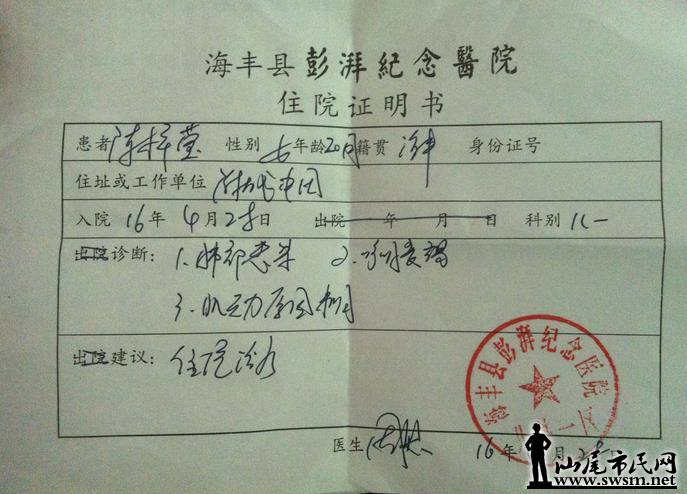 海丰县彭湃纪念醫院
住院证明书
患者 陈梓莹 性别 女 年龄 2月 籍贯 海丰 身份证号
住址或工作单位
入院 16年4月28日 出院 年 月 日 科别 儿一
出院诊断： 1. 肺部感染 2.
3. 肌张力 查因
出院建议： 住院治疗
海丰县彭湃纪念医院
医生
16年 月28日
汕尾市民网
www.swsm.net